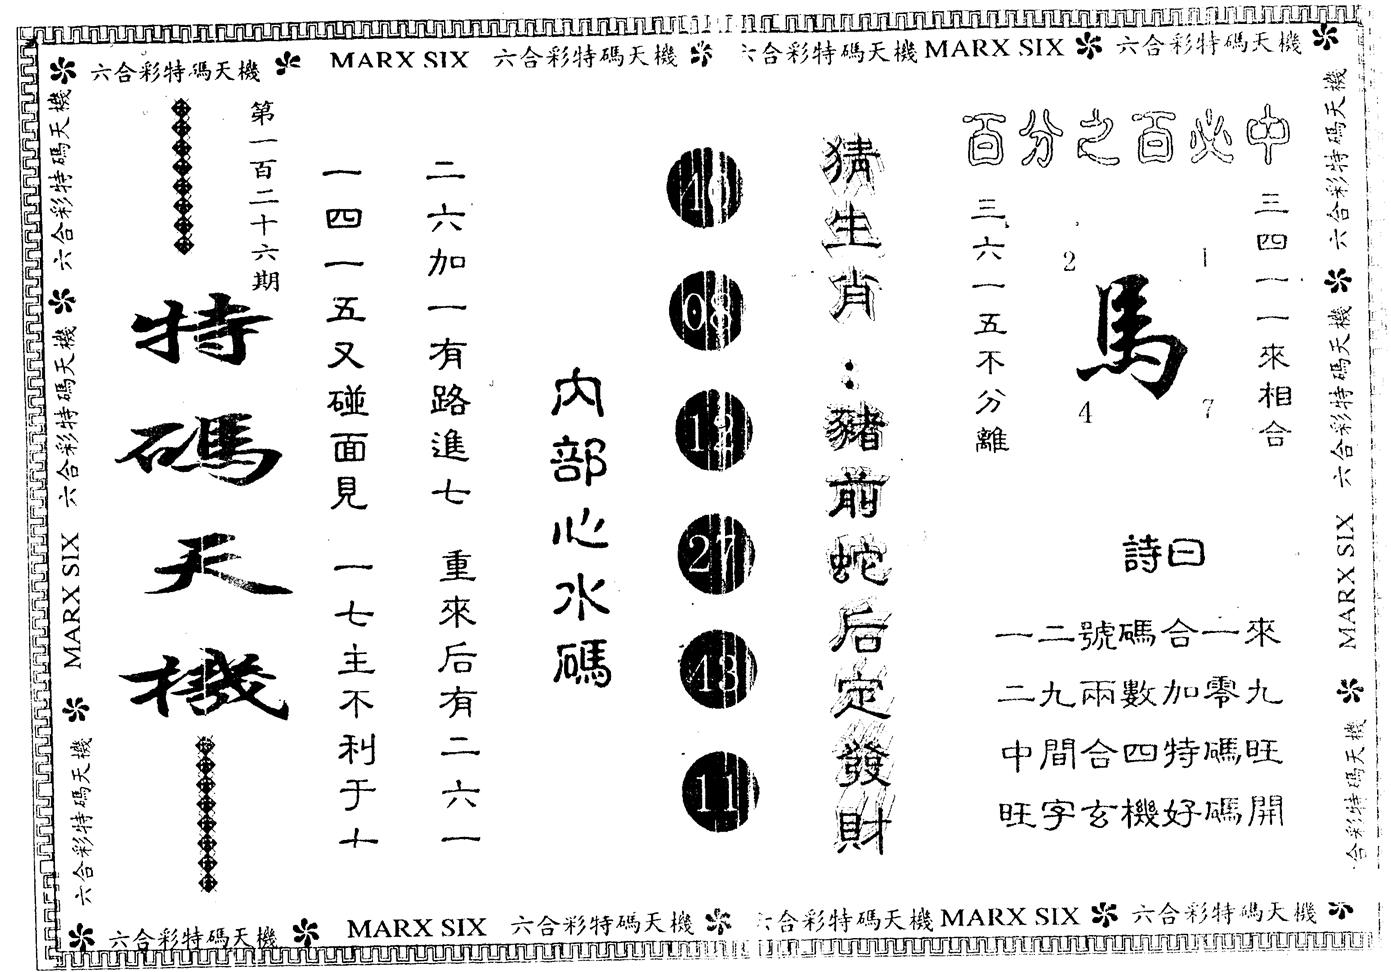 六合彩特碼天機 MARX SIX 六合彩特碼天機 六合彩特碼天機 MARX SIX 六合彩特碼天機
六合彩特碼天機
六合彩特碼天機
MARX SIX
六合彩特碼天機
第一百二十六期
特碼天機
二六加一有路進七 重來后有二六一
一四一五又碰面見 一七主不利于十
內部心水碼
08
12
27
43
11
猜生肖:豬前蛇后定發財
百分之百必中
三四一一來相合
三六一五不分離
2 1
馬
4 7
詩曰
一二號碼合一來
二九兩數加零九
中間合四特碼旺
旺字玄機好碼開
六合彩特碼天機
六合彩特碼天機
MARX SIX
合彩特碼天機
六合彩特碼天機 MARX SIX 六合彩特碼天機 六合彩特碼天機 MARX SIX 六合彩特碼天機